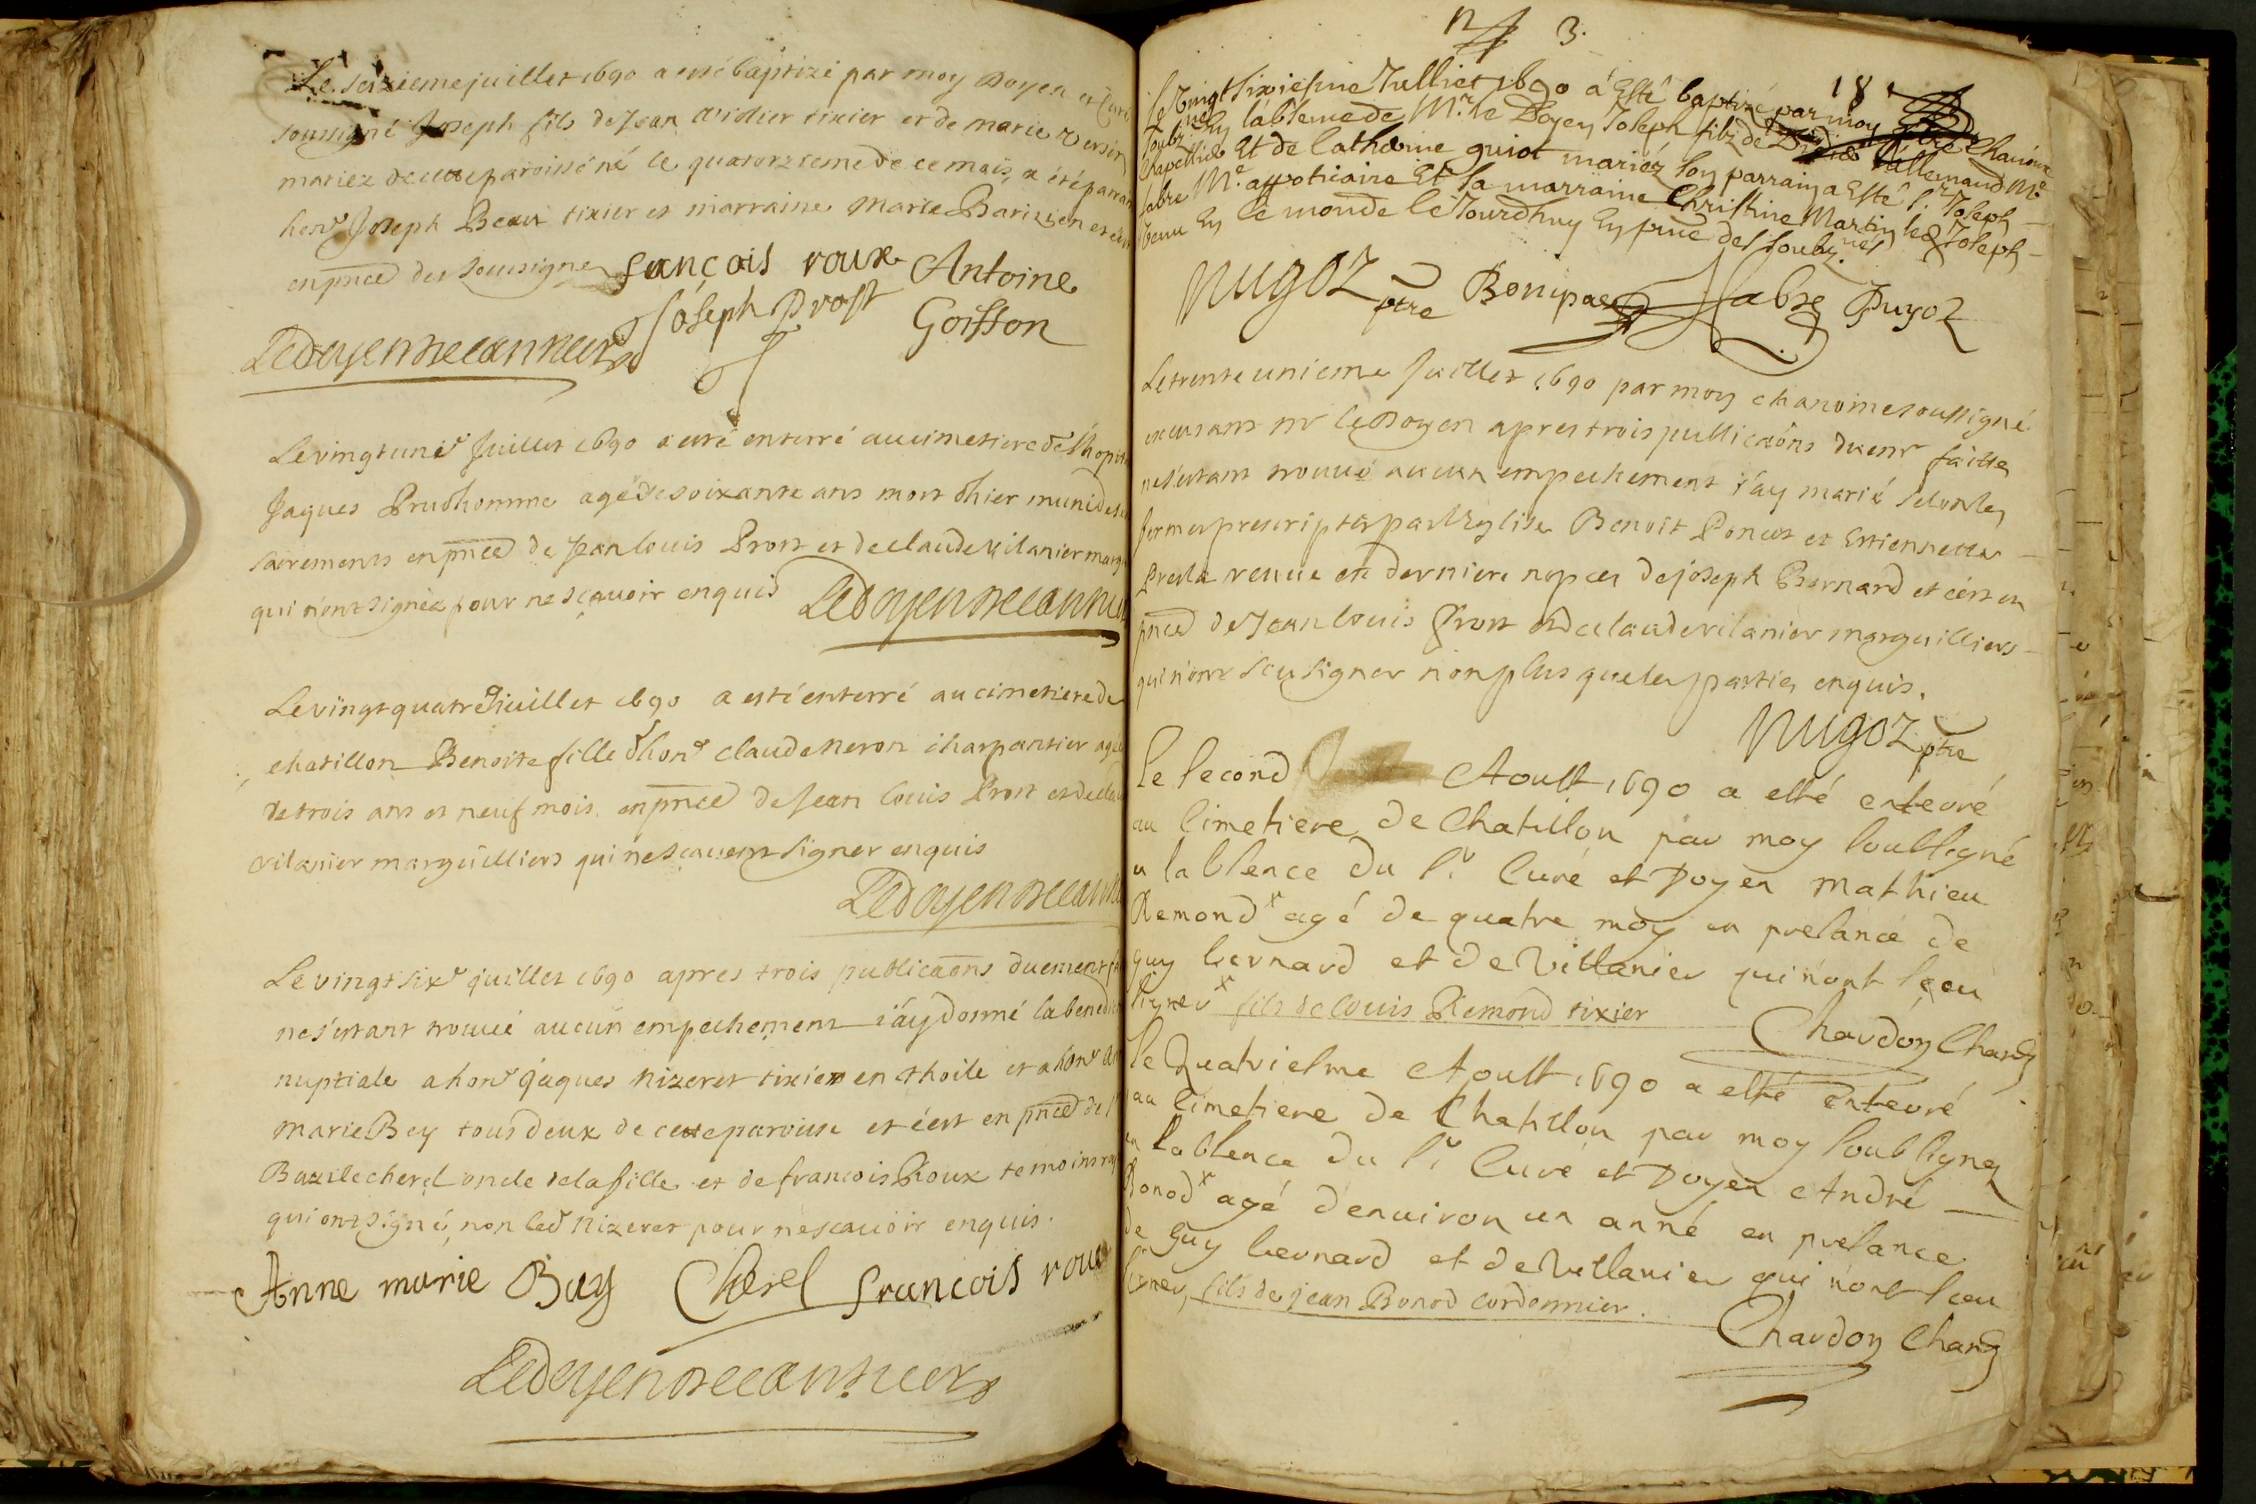 Le seizieme juillet 1690 a esté baptizé par moy Doyen et Curé
soussigné Joseph fils de Jean Didier tixier et de marie
mariez de cette paroisse né le quatorzieme de ce mois, a été parrain
honr Joseph Beau tixier et marraine Marie Barizien et c'est
en pnce des soussignez françois roux Antoine
Joseph Prost Goisson
Le doyen
Le vingt unie Juillet 1690 a esté enterré au cimetiere de l'hopital
Jaques Prudhomme agé de soixante ans mort d'hier muni des
sacrements en pnce de Jean louis Prost et de claude vilanier marg
qui n'ont signéz pour ne sçavoir enquis Le doyen
Le vingt quatre Juillet 1690 a esté enterré au cimetiere de
chatillon Benoite fille d'honr claude neron charpantier agée
de trois ans et neuf mois en pnce de Jean louis Prost et de claude
vilanier marguilliers qui ne scavent signer enquis
Le doyen
Le vingt sixe juillet 1690 apres trois publicaons duement
ne s'estant trouué aucun empechement i'ay donné la benedi
nuptiale a honr Jaques Nizeret tixier en thoile et a honr
marie Bey tous deux de cette paroisse et c'est en pnce de
Bazile cherel oncle de la fille et de francois Roux temoins
qui ont signé, non led Nizeret pour ne scauoir enquis.
Anne marie Bay Cherel francois roux
Le doyen
n 3.
18
le Vingt sixiesme Julliet 1690 a Esté baptizé par moy ptre Chanoine
soubzné En l'absence de Mr. le Doyen Joseph filz de l'allemand Me
Chapellier Et de Catherine guiot mariéz son parrain a Esté Sr. Joseph
fabre Me. appoticaire Et sa marraine Christine Martin led Joseph
venu En le monde le Jourdhuy En pnce des soubznés
Nugoz ptre Bonipae fabre Puyoz
Le trente unieme Juillet 1690 par moy chanoine soussigné
en cas ant mr le Doyen apres trois publicaons duemt faittes
ne s'estant trouué aucun empechement i'ay marié selon les
formes prescriptes par l'Eglise Benoit Poncet et Estiennette
vesve en derniere nopces de Joseph Bernard et c'est en
pnce de Jean louis Prost et de claude vilanier marguilliers
qui n'ont sceu signer non plus que les parties enquis.
Nugoz ptre
Le second Aoust 1690 a esté enterré
au Cimetiere de Chatillon par moy soussigné
en labsence du Sr Curé et Doyen Mathieu
Remond x agé de quatre moy en presance de
guy bernard et de Villanier qui n'ont sceu
signer x fils de louis Remond tixier
Chardon Chane
Le Quatriesme Aoust 1690 a esté enterré
au Cimetiere de Chatillon par moy soubsignez
en labsence du Sr Curé et Doyen André
Bonod x agé denviron un anné en presance
de guy bernard et de Villanier qui n'ont sceu
signer, fils de jean Bonod cordonnier.
Chardon Chane